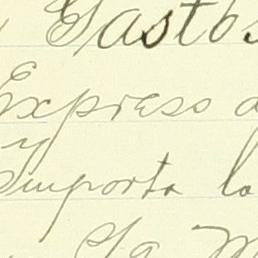 Gastos
Expreso a
y
importa la
La